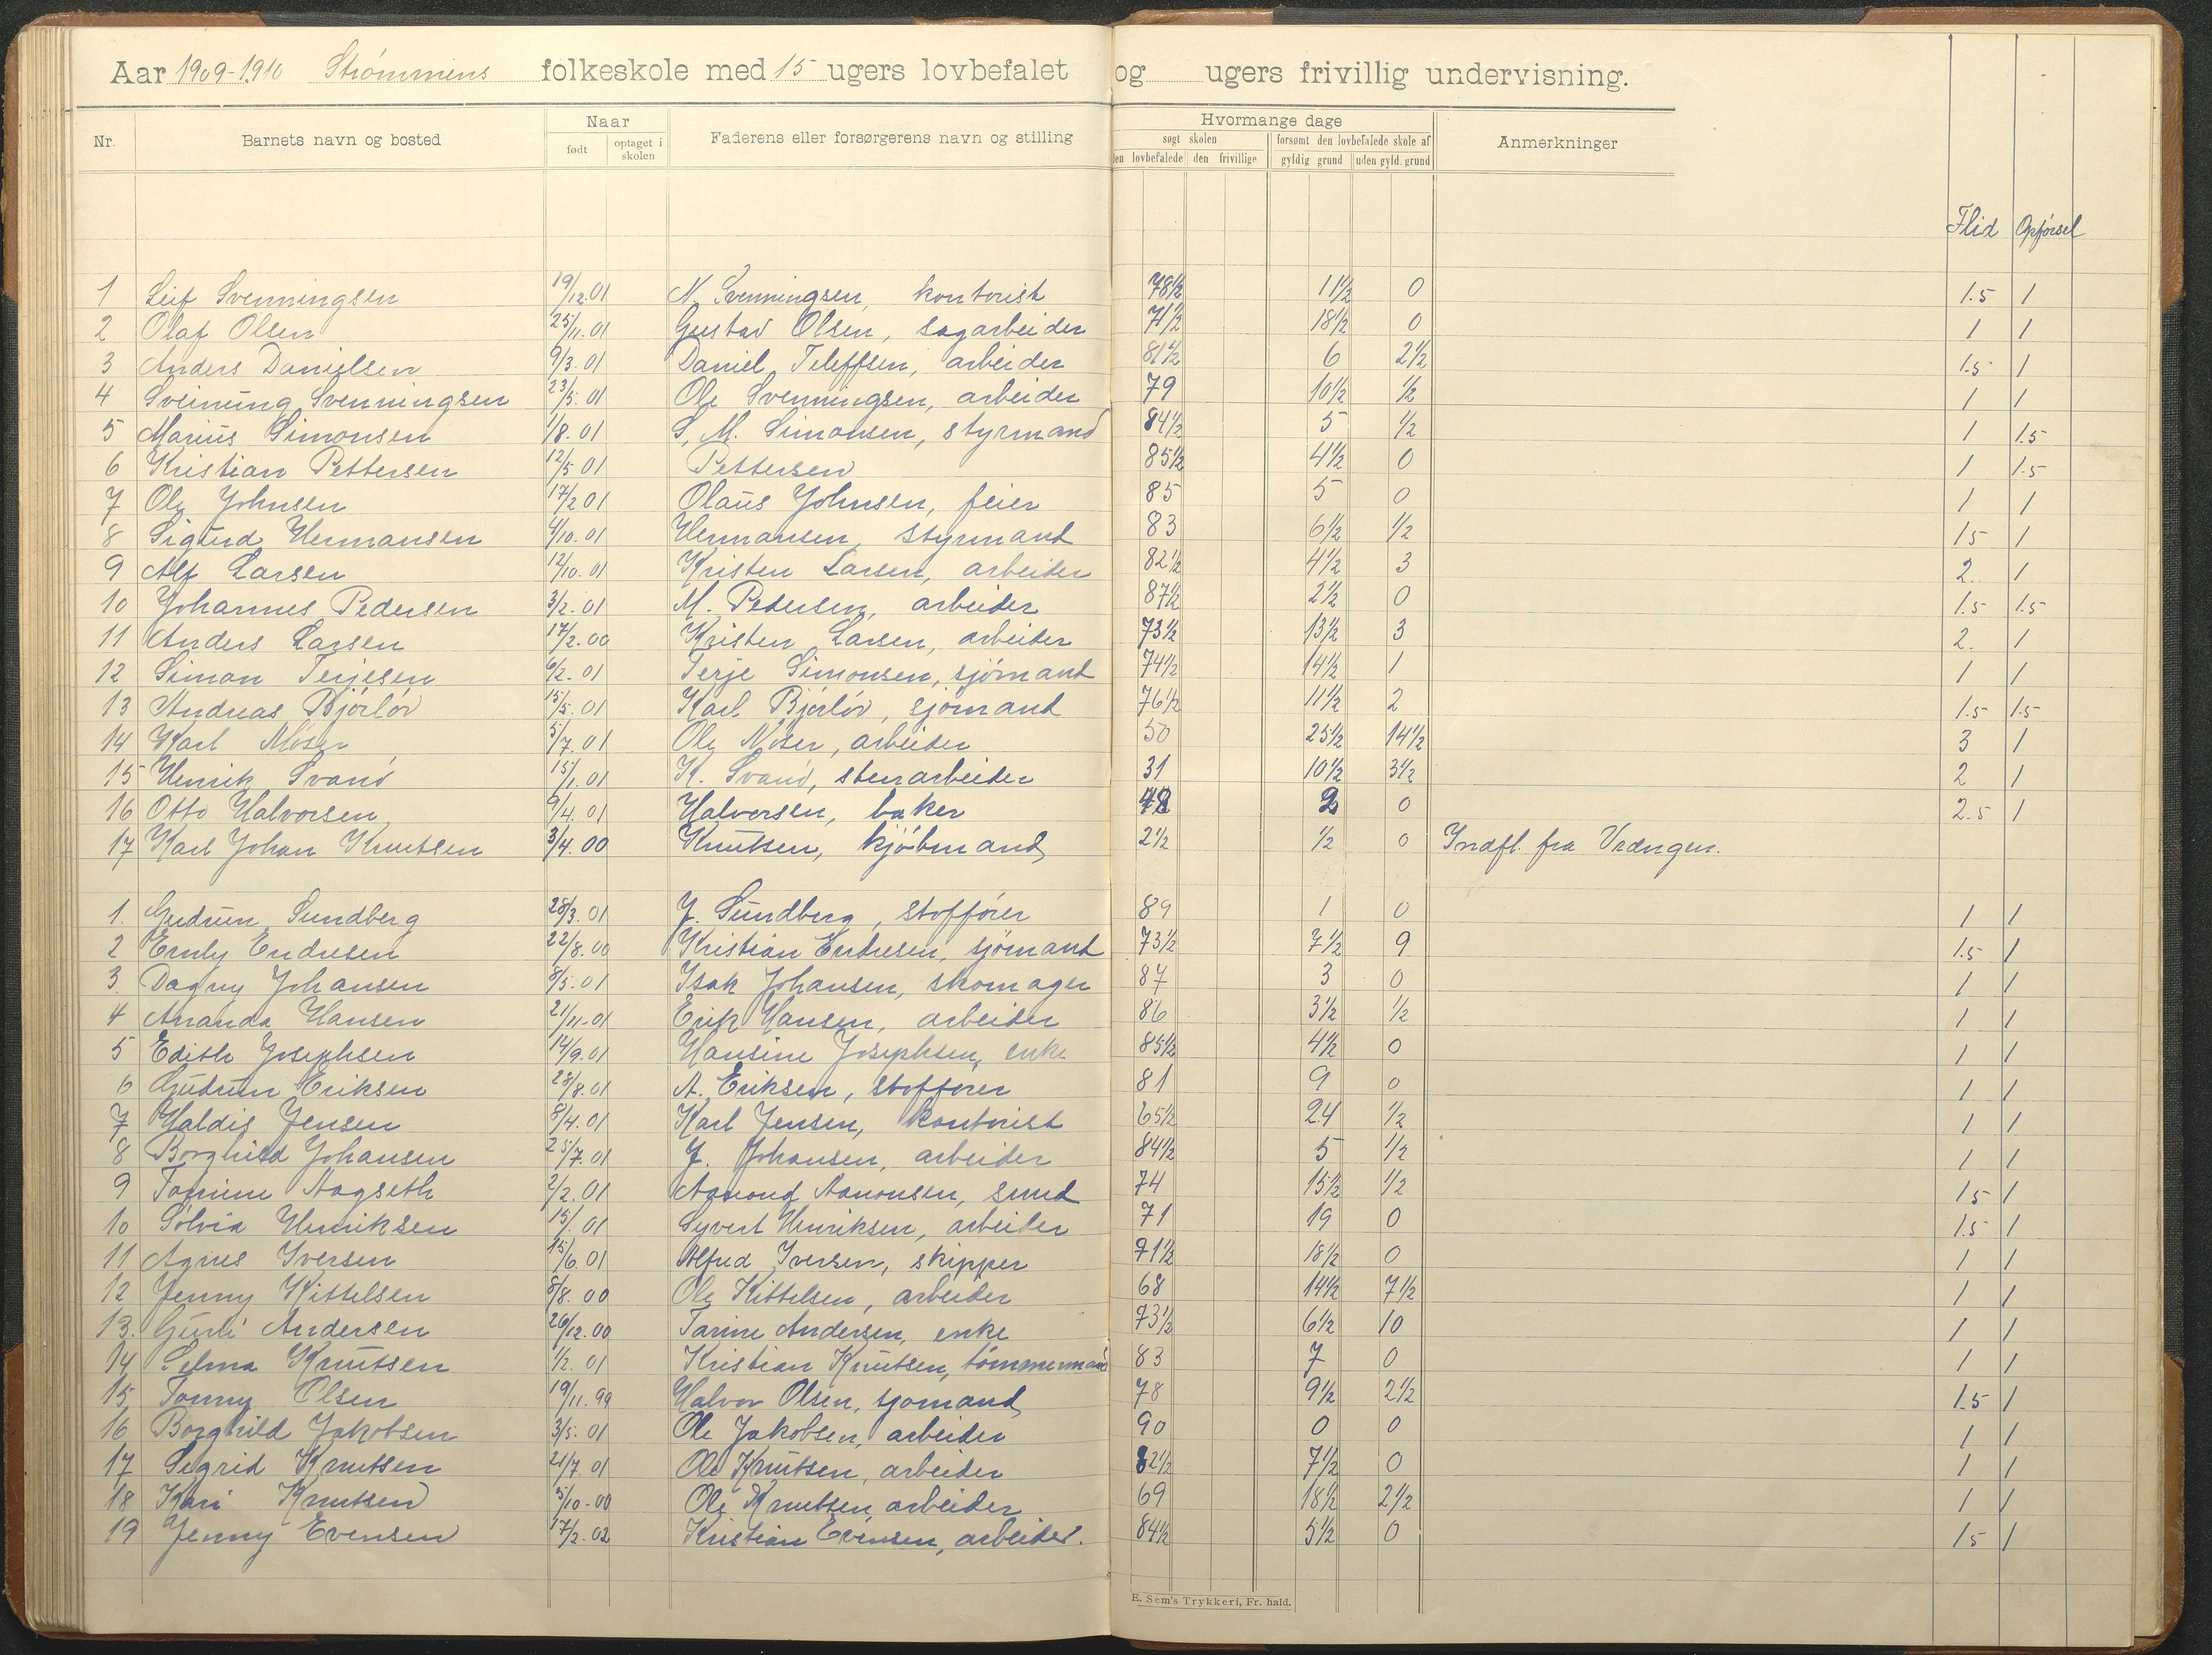 Aar 1909-1910 Strømmens folkeskole med 15 ugers lovbefalet og ugers frivillig undervisning.
Nr. Barnets navn og bosted Naar født optaget i skolen Faderens eller forsørgerens navn og stilling Hvormange dage søgt skolen den lovbefalede den frivillige forsømt den lovbefalede skole af gyldig grund uden gyld. grund Anmerkninger
Flid Opførsel
1 Leif Svenningsen 19/12.01 N. Svenningsen, kontorist 78½ 11½ 0 1.5 1
2 Olaf Olsen 25/11.01 Gustav Olsen, sagarbeider 71½ 18½ 0 1 1
3 Anders Danielsen 9/3.01 Daniel Teleffsen, arbeider 81½ 6 2½ 1.5 1
4 Sveinung Svenningsen 23/5.01 Ole Svenningsen, arbeider 79 10½ ½ 1 1
5 Marius Simonsen 1/8.01 S. M. Simonsen, styrmand 84½ 5 ½ 1 1.5
6 Kristian Pettersen 12/5 01 Pettersen 85½ 4½ 0 1 1.5
7 Ole Johnsen 17/2 01 Olaus Johnsen, feier 85 5 0 1 1
8 Sigurd Hermansen 4/10.01 Hermansen, styrmand 83 6½ ½ 1.5 1
9 Alf Larsen 12/10.01 Kristen Larsen, arbeider 82½ 4½ 3 2. 1
10 Johannes Pedersen 3/2.01 M. Pedersen, arbeider 87½ 2½ 0 1.5 1.5
11 Anders Larsen 17/2.00 Kristen Larsen, arbeider 73½ 13½ 3 2. 1
12 Simon Terjesen 6/2.01 Terje Simonsen, sjømand 74½ 14½ 1 1 1
13 Andreas Bjørløv 15/5.01 Karl Bjørløv, sjømand 76½ 11½ 2 1.5 1.5
14 Karl Moser 5/7.01 Ole Moser, arbeider 50 25½ 14½ 3 1
15 Henrik Svanø 15/1.01 K. Svanø, stenarbeider 31 10½ 3½ 2 1
16 Otto Halvorsen 9/4.01 Halvorsen, baker 48 2 0 2.5 1
17 Karl Johan Knutsen 3/4.00 Knutsen, kjøbmand 2½ ½ 0 Indfl. fra Vrængen.
1. Gudrun Sundberg 28/3.01 J. Sundberg, stoffører 89 1 0 1 1
2 Emly Endresen 22/8.00 Kristian Endresen, sjømand 73½ 7½ 9 1.5 1
3. Dagny Johansen 8/5.01 Isak Johansen, skomager 87 3 0 1 1
4 Ananda Hansen 21/11-01 Erik Hansen, arbeider 86 3½ ½ 1 1
5 Edith Josephsen 14/9.01 Hansine Josephsen, enke 85½ 4½ 0 1 1
6 Gudrun Eriksen 28/8.01 A. Eriksen, stoffører 81 9 0 1 1
7 Haldis Jensen 8/4.01 Karl Jensen, kontorist 65½ 24 ½ 1 1
8 Borghild Johansen 25/7.01 J. Johansen, arbeider 84½ 5 ½ 1 1
9 Tomine Aagseth 2/2.01 Aanond Aanonsen, smed 74 15½ ½ 1.5 1
10 Solvia Henriksen 15/.01 Syvert Henriksen, arbeider 71 19 0 1.5 1
11 Agnes Iversen 15/6.01 Alfred Iversen, skipper 71½ 18½ 0 1 1
12 Jenny Kittelsen 8/8.00 Ole Kittelsen, arbeider 68 14½ 7½ 1 1
13. Gurli Andersen 26/12.00 Tarine Andersen, enke 73½ 6½ 10 1 1
14 Selma Knutsen 1/2.01 Kristian Knutsen, tømmermand 83 7 0 1 1
15 Tonny Olsen 19/11.99 Halvor Olsen, sjømand 78 9½ 2½ 1.5 1
16 Borghild Jakobsen 3/5.01 Ole Jakobsen, arbeider 90 0 0 1 1
17 Sigrid Knutsen 21/7.01 Ole Knutsen, arbeider 82½ 7½ 0 1 1
18 Kari Knutsen 5/10-00 Ole Knutsen, arbeider 69 18½ 2½ 1 1
19 Jenny Evensen 17/2.02 Kristian Evensen, arbeider. 84½ 5½ 0 1.5 1
E. Sem's Trykkeri, Fr. hald.